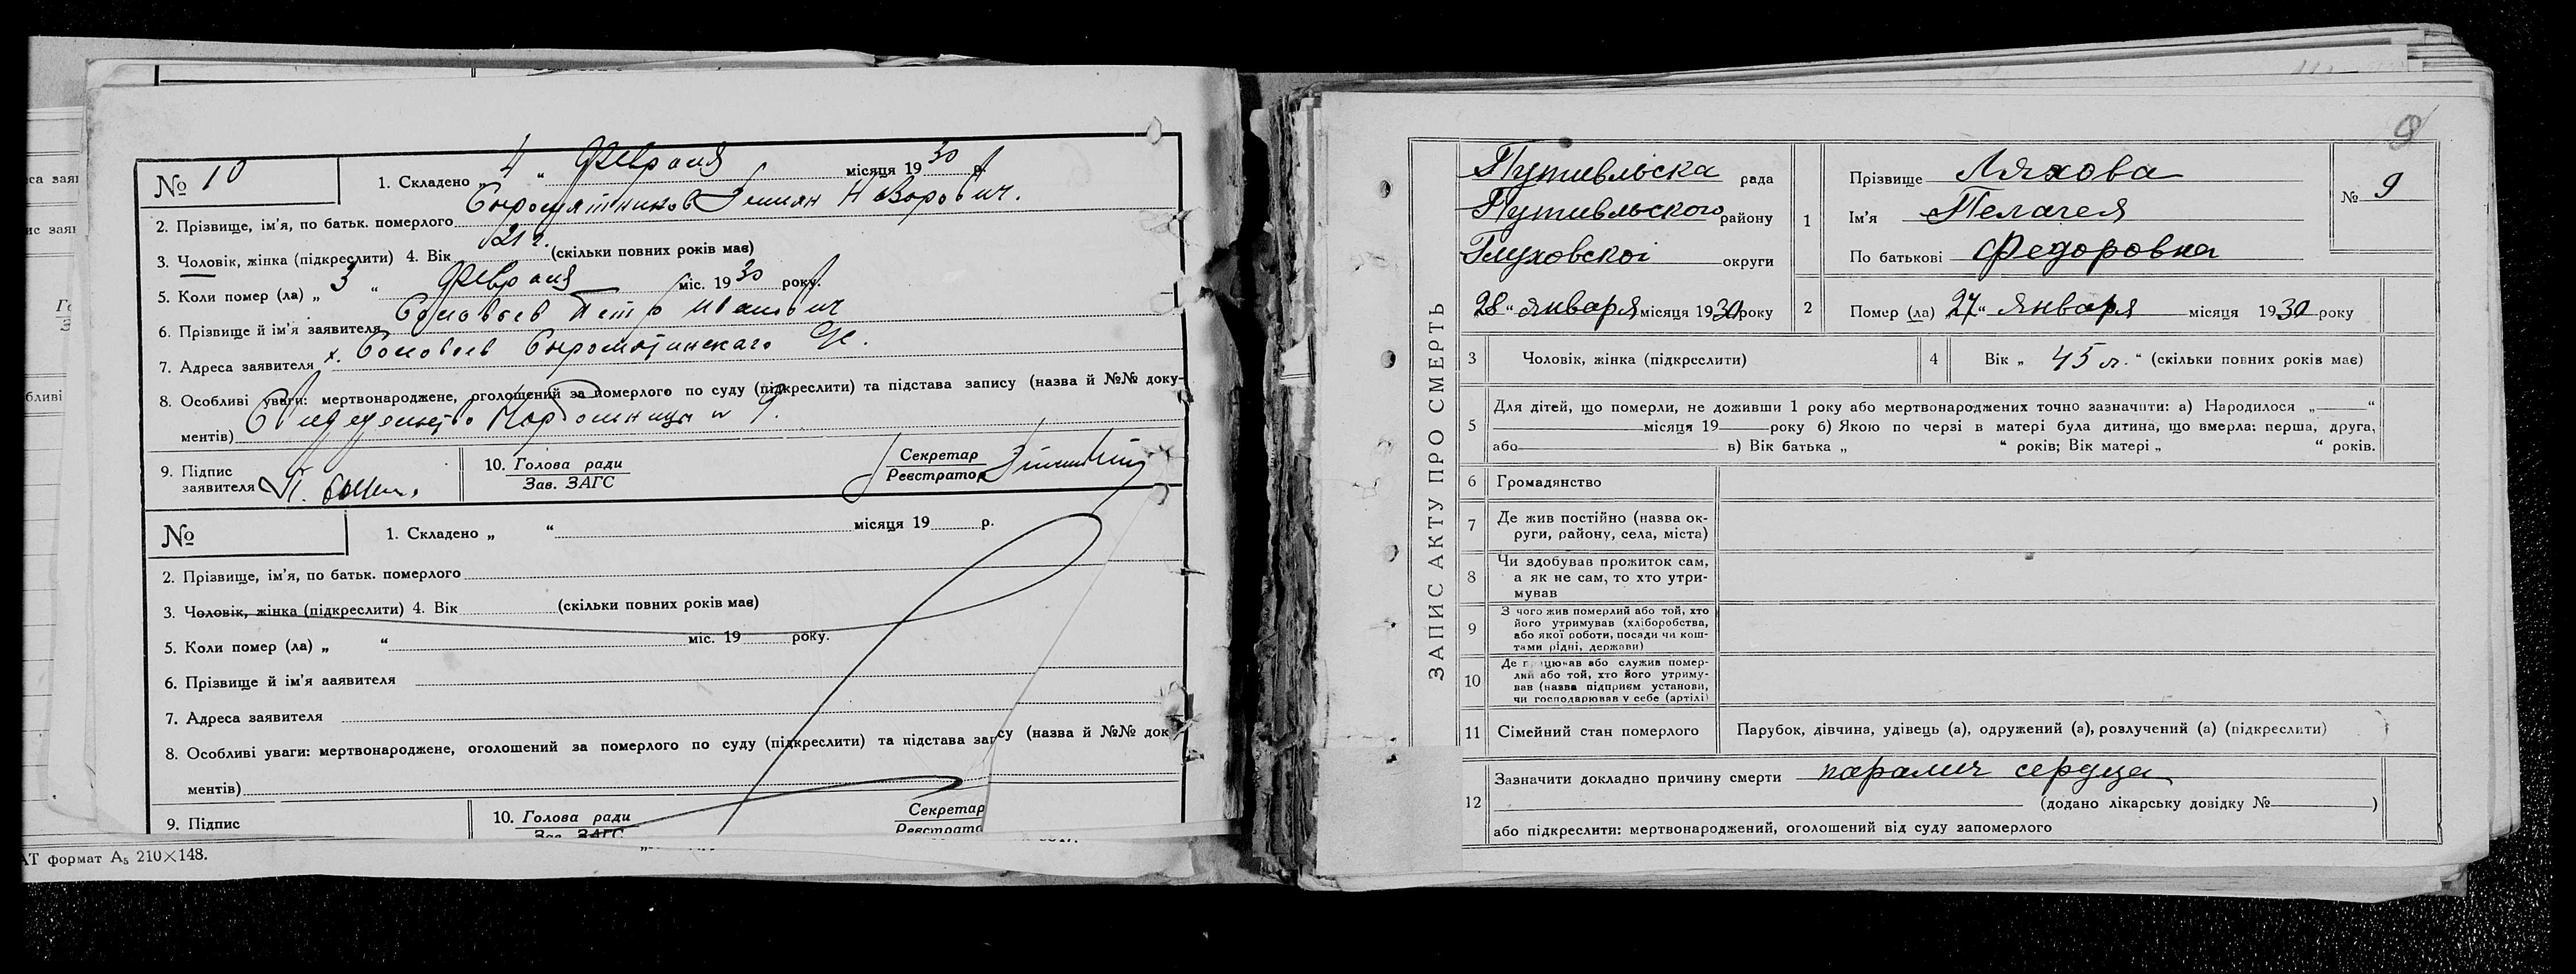 № 10
1. Складено „ 4 “ Февраля місяця 1930 р.
2. Прізвище, ім’я, по батьк. померлого Сыромятников Демян
3. Чоловік, жінка (підкреслити) 4. Вік 21 г. (скільки повних років має)
5. Коли помер (ла) „ 3 “ Февраля міс. 1930 року.
6. Прізвище й ім’я заявителя Соловьев Петр Иванович
7. Адреса заявителя х. Соловьев
8. Особливі уваги: мертвонароджене, оголошений за померлого по суду (підкреслити) та підстава запису (назва й №№ доку-
ментів)
9. Підпис
заявителя
10. Голова ради
Зав. ЗАГС
Секретар
Реєстратор
№
1. Складено „ “ місяця 19 р.
2. Прізвище, ім’я, по батьк. померлого
3. Чоловік, жінка (підкреслити) 4. Вік (скільки повних років має)
5. Коли помер (ла) „ “ міс. 19 року.
6. Прізвище й ім’я заявителя
7. Адреса заявителя
8. Особливі уваги: мертвонароджене, оголошений за померлого по суду (підкреслити) та підстава запису (назва й №№ док
ментів)
9. Підпис
10. Голова ради
Зав. ЗАГС
Секретар
Реєстратор
АТ формат А5 210×148.
9
ЗАПИС АКТУ ПРО СМЕРТЬ
Путивльска рада
Путивльского району
Глуховскоі округи
28 “ января місяця 1930 року
1
Прізвище Ляхова
Ім’я Пелагея
По батькові Федоровна
№ 9
2 Помер (ла) „ 27 “ января місяця 1930 року
3 Чоловік, жінка (підкреслити)
4 Вік „ 45 л. “ (скільки повних років має)
5 Для дітей, що померли, не доживши 1 року або мертвонароджених точно зазначити: а) Народилося „ “
місяця 19 року б) Якою по черзі в матері була дитина, що вмерла: перша, друга,
або в) Вік батька „ “ років; Вік матері „ “ років.
6 Громадянство
7 Де жив постійно (назва ок-
руги, району, села, міста)
8 Чи здобував прожиток сам,
а як не сам, то хто утри-
мував
9 З чого жив померлий або той, хто
його утримував (хліборобства,
або якої роботи, посади чи кош-
тами рідні, держави)
10 Де працював або служив помер-
лий або той, хто його утриму-
вав (назва підприєм установи,
чи господарював у себе (артілі)
11 Сімейний стан померлого Парубок, дівчина, удівець (а), одружений (а), розлучений (а) (підкреслити)
12 Зазначити докладно причину смерти паралич сердца
(додано лікарську довідку № )
або підкреслити: мертвонароджений, оголошений від суду запомерлого